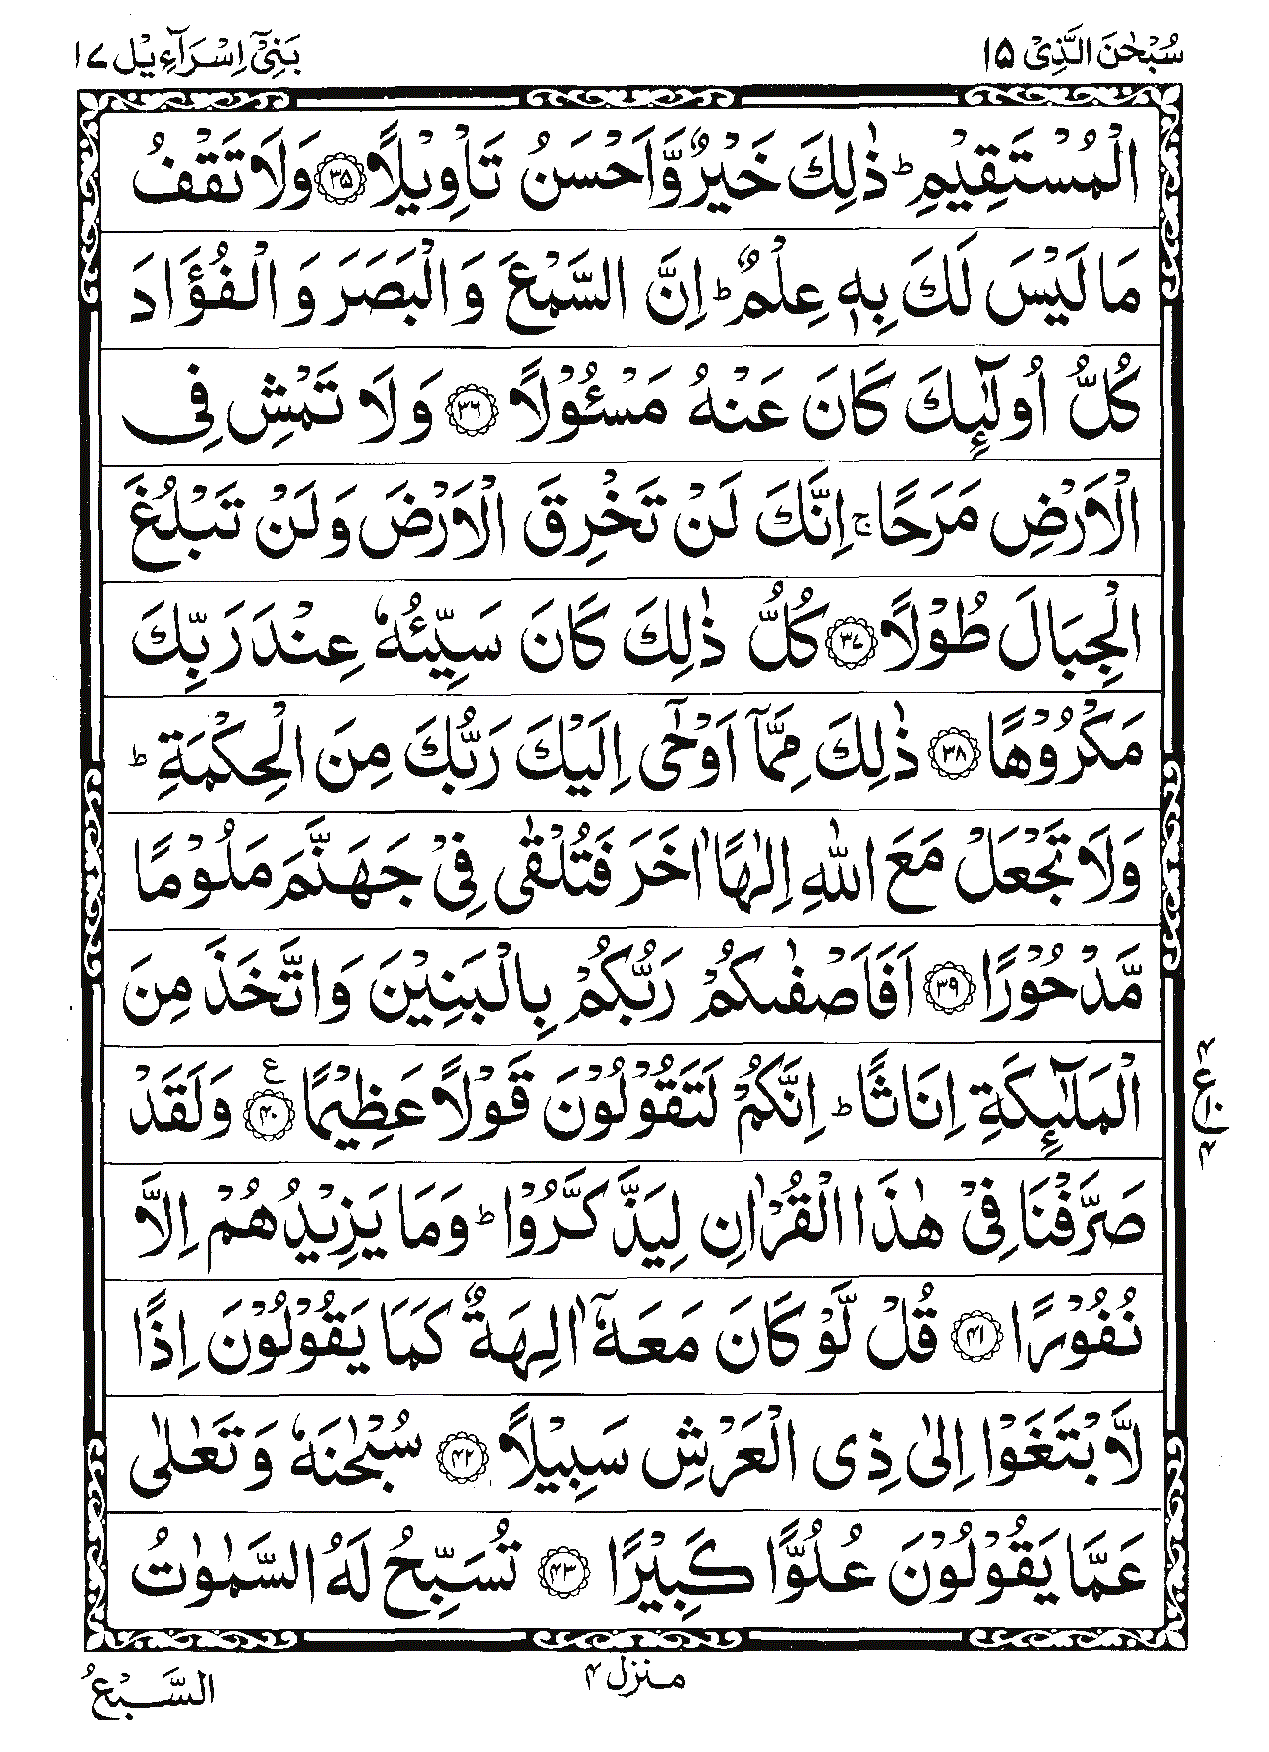 سُبْحٰنَ الَّذِیْۤ ١٥
بَنِیْۤ اِسْرَآءِیْل ١٧
الْمُسْتَقِیْمِ ؕ ذٰلِكَ خَیْرٌ وَّاَحْسَنُ تَاْوِیْلًا ﴿۳۵﴾ وَلَا تَقْفُ
مَا لَیْسَ لَكَ بِهٖ عِلْمٌ ؕ اِنَّ السَّمْعَ وَالْبَصَرَ وَالْفُؤَادَ
كُلُّ اُولٰٓئِكَ كَانَ عَنْهُ مَسْـُٔوْلًا ﴿۳۶﴾ وَلَا تَمْشِ فِی
الْاَرْضِ مَرَحًا ۚ اِنَّكَ لَنْ تَخْرِقَ الْاَرْضَ وَلَنْ تَبْلُغَ
الْجِبَالَ طُوْلًا ﴿۳۷﴾ كُلُّ ذٰلِكَ كَانَ سَیِّئُهٗ عِنْدَ رَبِّكَ
مَكْرُوْهًا ﴿۳۸﴾ ذٰلِكَ مِمَّاۤ اَوْحٰۤی اِلَیْكَ رَبُّكَ مِنَ الْحِكْمَةِ ؕ
وَلَا تَجْعَلْ مَعَ اللّٰهِ اِلٰهًا اٰخَرَ فَتُلْقٰی فِیْ جَهَنَّمَ مَلُوْمًا
مَّدْحُوْرًا ﴿۳۹﴾ اَفَاَصْفٰىكُمْ رَبُّكُمْ بِالْبَنِیْنَ وَاتَّخَذَ مِنَ
الْمَلٰٓئِكَةِ اِنَاثًا ؕ اِنَّكُمْ لَتَقُوْلُوْنَ قَوْلًا عَظِیْمًا ﴿۴۰﴾ ع وَلَقَدْ
صَرَّفْنَا فِیْ هٰذَا الْقُرْاٰنِ لِیَذَّكَّرُوْا ؕ وَمَا یَزِیْدُهُمْ اِلَّا
نُفُوْرًا ﴿۴۱﴾ قُلْ لَّوْ كَانَ مَعَهٗۤ اٰلِهَةٌ كَمَا یَقُوْلُوْنَ اِذًا
لَّابْتَغَوْا اِلٰی ذِی الْعَرْشِ سَبِیْلًا ﴿۴۲﴾ سُبْحٰنَهٗ وَتَعٰلٰی
عَمَّا یَقُوْلُوْنَ عُلُوًّا كَبِیْرًا ﴿۴۳﴾ تُسَبِّحُ لَهُ السَّمٰوٰتُ
۴ ع ١٠ ۴
منزل ۴
السَّبْعُ